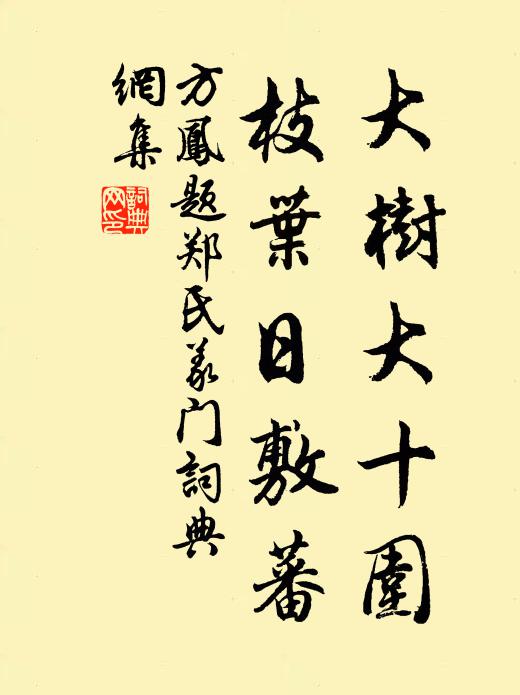 大樹大十圍
枝葉日敷蕃
方鳳題郑氏義门詞典
網集
詞典網印